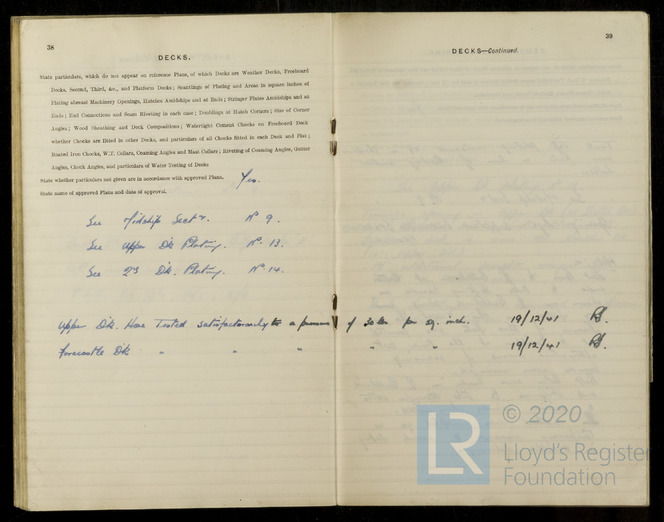 38
DECKS.
State particulars, which do not appear on reference Plans, of which Decks are Weather Decks, Freeboard
Decks, Second, Third, &c., and Platform Decks; Scantlings of Plating and Areas in square inches of
Plating abreast Machinery Openings, Hatches Amidships and at Ends; Stringer Plates Amidships and at
Ends; End Connections and Seam Riveting in each case; Doublings at Hatch Corners; Size of Corner
Angles; Wood Sheathing and Deck Compositions; Watertight Cement Chocks on Freeboard Deck
whether Chocks are fitted in other Decks, and particulars of all Chocks fitted in each Deck and Flat;
Boated Iron Chocks, W.T. Collars, Coaming Angles and Mast Collars; Riveting of Coaming Angles, Gutter
Angles, Chock Angles, and particulars of Water Testing of Decks
State whether particulars not given are in accordance with approved Plans. Yes.
State name of approved Plans and date of approval.
See Midship Sectn. No 9.
See Upper Dk Plating. No. 13.
See 2nd Dk. Plating. No. 14.
39
DECKS—Continued.
Upper Dk. Hose Tested satisfactorily to a pressure of 30 lbs per sq. inch. 19/12/41
Forecastle Dk " " " " " 19/12/41
LR
© 2020
Lloyd's Register
Foundation